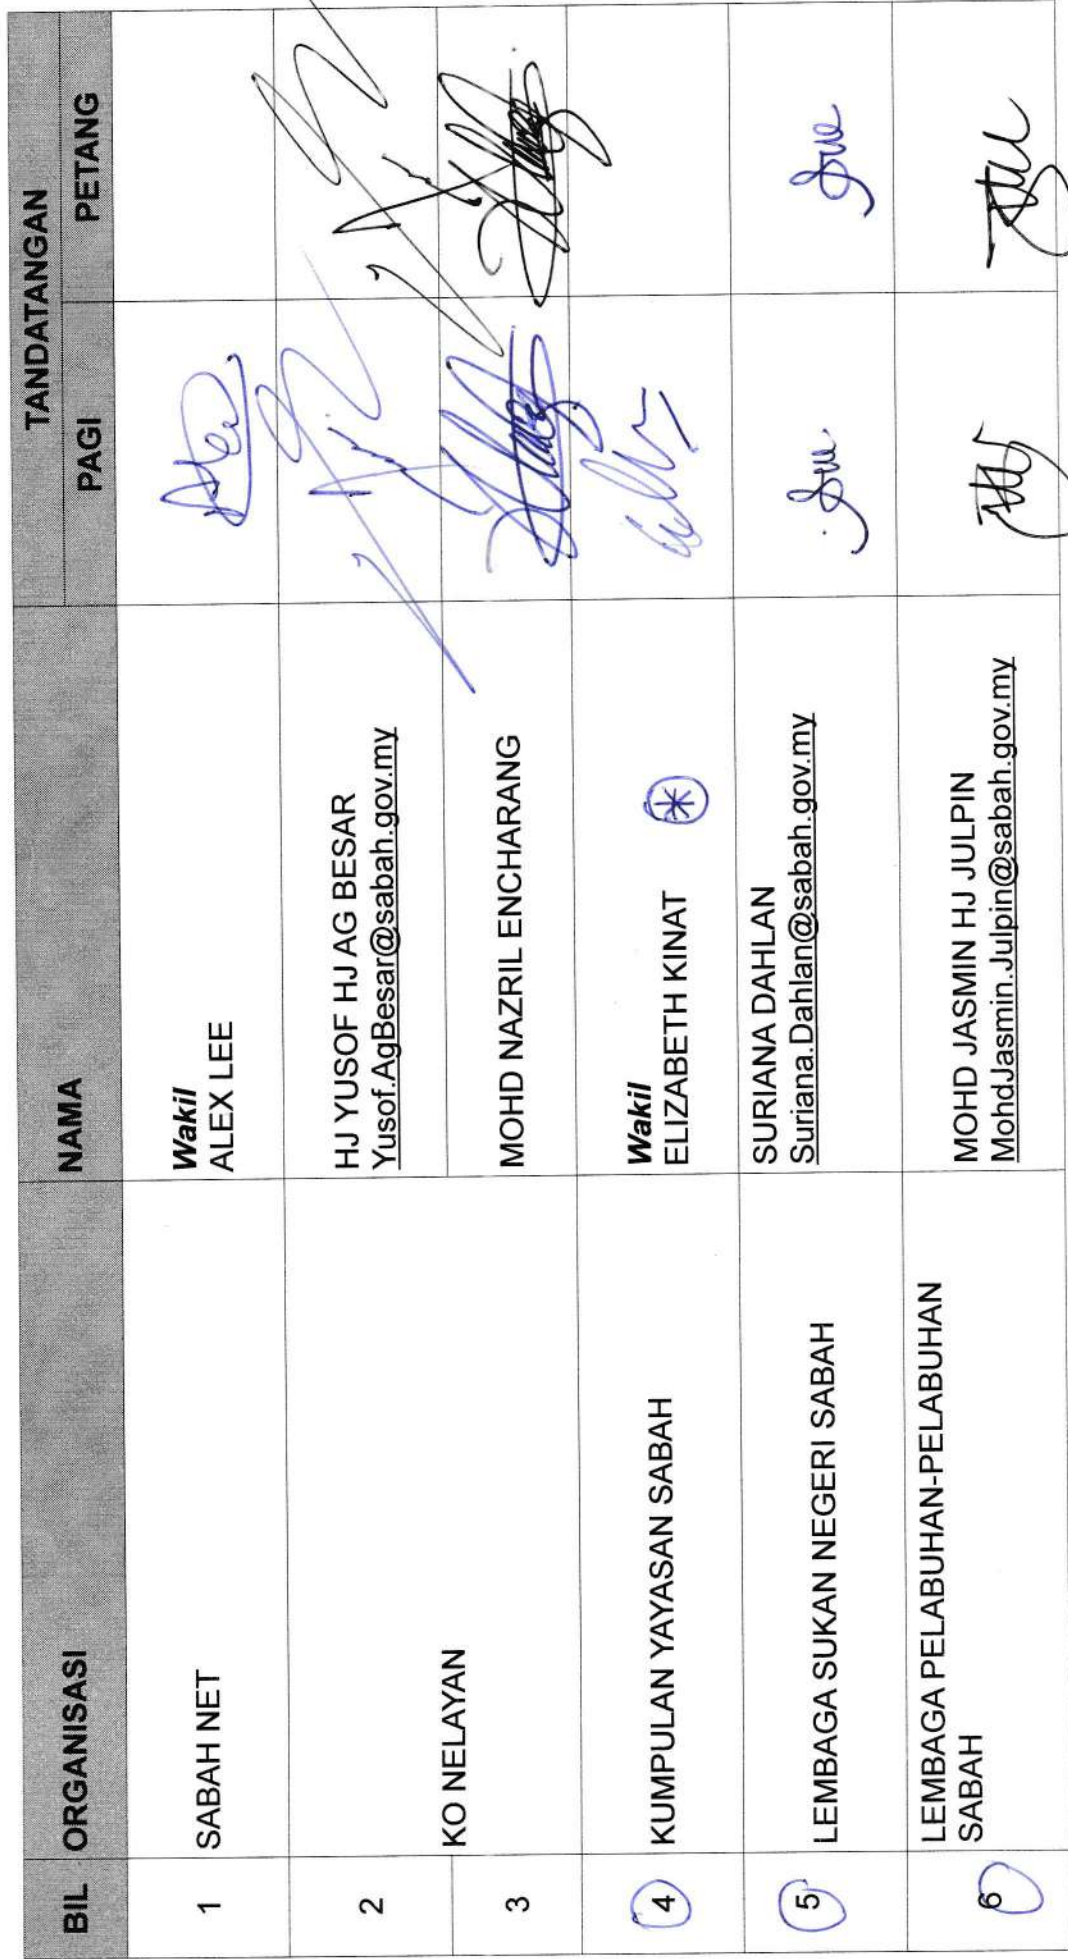 BIL ORGANISASI NAMA TANDATANGAN
PAGI PETANG
1 SABAH NET Wakil
ALEX LEE
2 KO NELAYAN HJ YUSOF HJ AG BESAR
Yusof.AgBesar@sabah.gov.my
3 MOHD NAZRIL ENCHARANG
4 KUMPULAN YAYASAN SABAH Wakil
ELIZABETH KINAT *
5 LEMBAGA SUKAN NEGERI SABAH SURIANA DAHLAN
Suriana.Dahlan@sabah.gov.my
Sue Sue
6 LEMBAGA PELABUHAN-PELABUHAN
SABAH
MOHD JASMIN HJ JULPIN
MohdJasmin.Julpin@sabah.gov.my